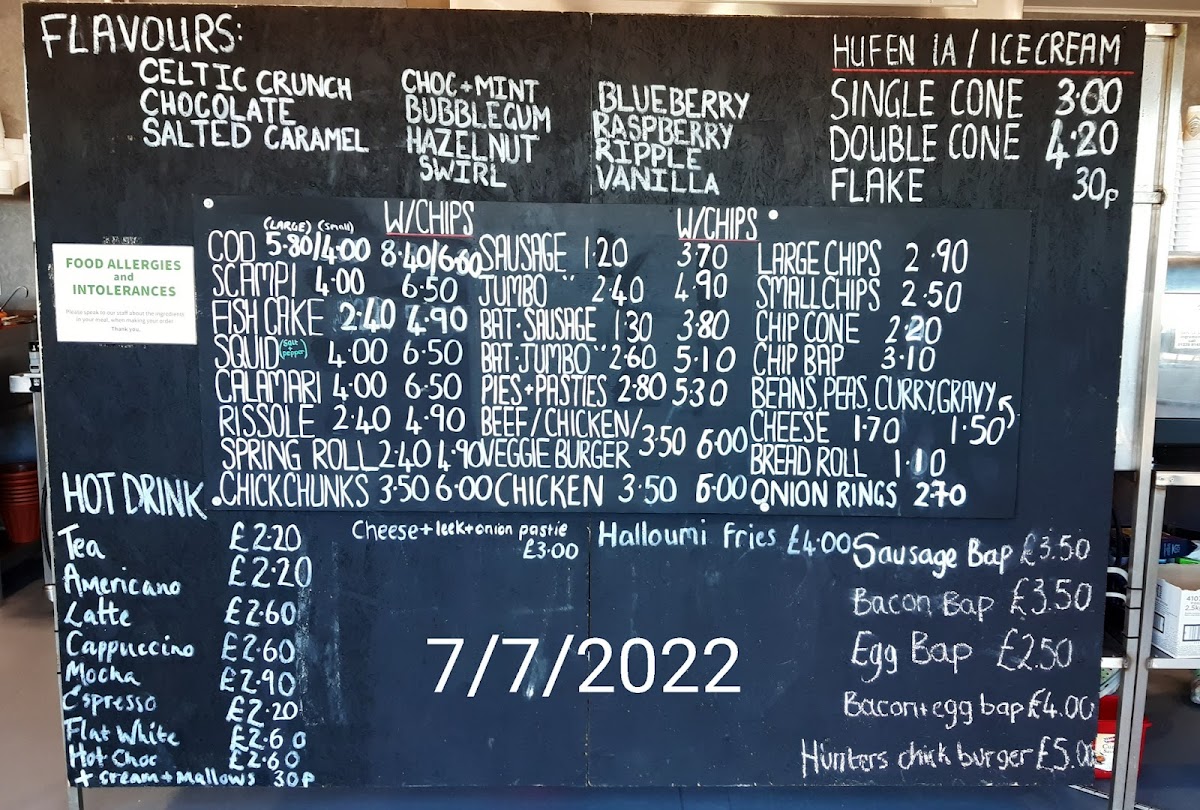 FLAVOURS:
CELTIC CRUNCH
CHOCOLATE
SALTED CARAMEL
CHOC+MINT
BUBBLEGUM
HAZELNUT
SWIRL
BLUEBERRY
RASPBERRY
RIPPLE
VANILLA
HUFEN IA / ICECREAM
SINGLE CONE 3.00
DOUBLE CONE 4.20
FLAKE 30p
FOOD ALLERGIES
and
INTOLERANCES
Please speak to our staff about the ingredients
in your meal, when making your order.
Thank you.
(LARGE) (small) W/CHIPS
COD 5.80/4.00 8.40/6.60
SCAMPI 4.00 6.50
FISH CAKE 2.40 4.90
SQUID (Salt + pepper) 4.00 6.50
CALAMARI 4.00 6.50
RISSOLE 2.40 4.90
SPRING ROLL 2.40 4.90
CHICK CHUNKS 3.50 6.00
W/CHIPS
SAUSAGE 1.20 3.70
JUMBO " 2.40 4.90
BAT. SAUSAGE 1.30 3.80
BAT. JUMBO " 2.60 5.10
PIES+PASTIES 2.80 5.30
BEEF/CHICKEN/
VEGGIE BURGER 3.50 6.00
CHICKEN 3.50 6.00
LARGE CHIPS 2.90
SMALL CHIPS 2.50
CHIP CONE 2.20
CHIP BAP 3.10
BEANS, PEAS, CURRY, GRAVY
CHEESE 1.70 1.50
BREAD ROLL 1.10
ONION RINGS 2.70
HOT DRINK
Tea £2.20
Americano £2.20
Latte £2.60
Cappuccino £2.60
Mocha £2.90
Espresso £2.20
Flat White £2.60
Hot Choc £2.60
+ cream + mallows 30p
Cheese+leek+onion pastie
£3.00
Halloumi Fries £4.00
Sausage Bap £3.50
Bacon Bap £3.50
Egg Bap £2.50
Bacon+egg bap £4.00
Hunters chick burger £5.00
7/7/2022